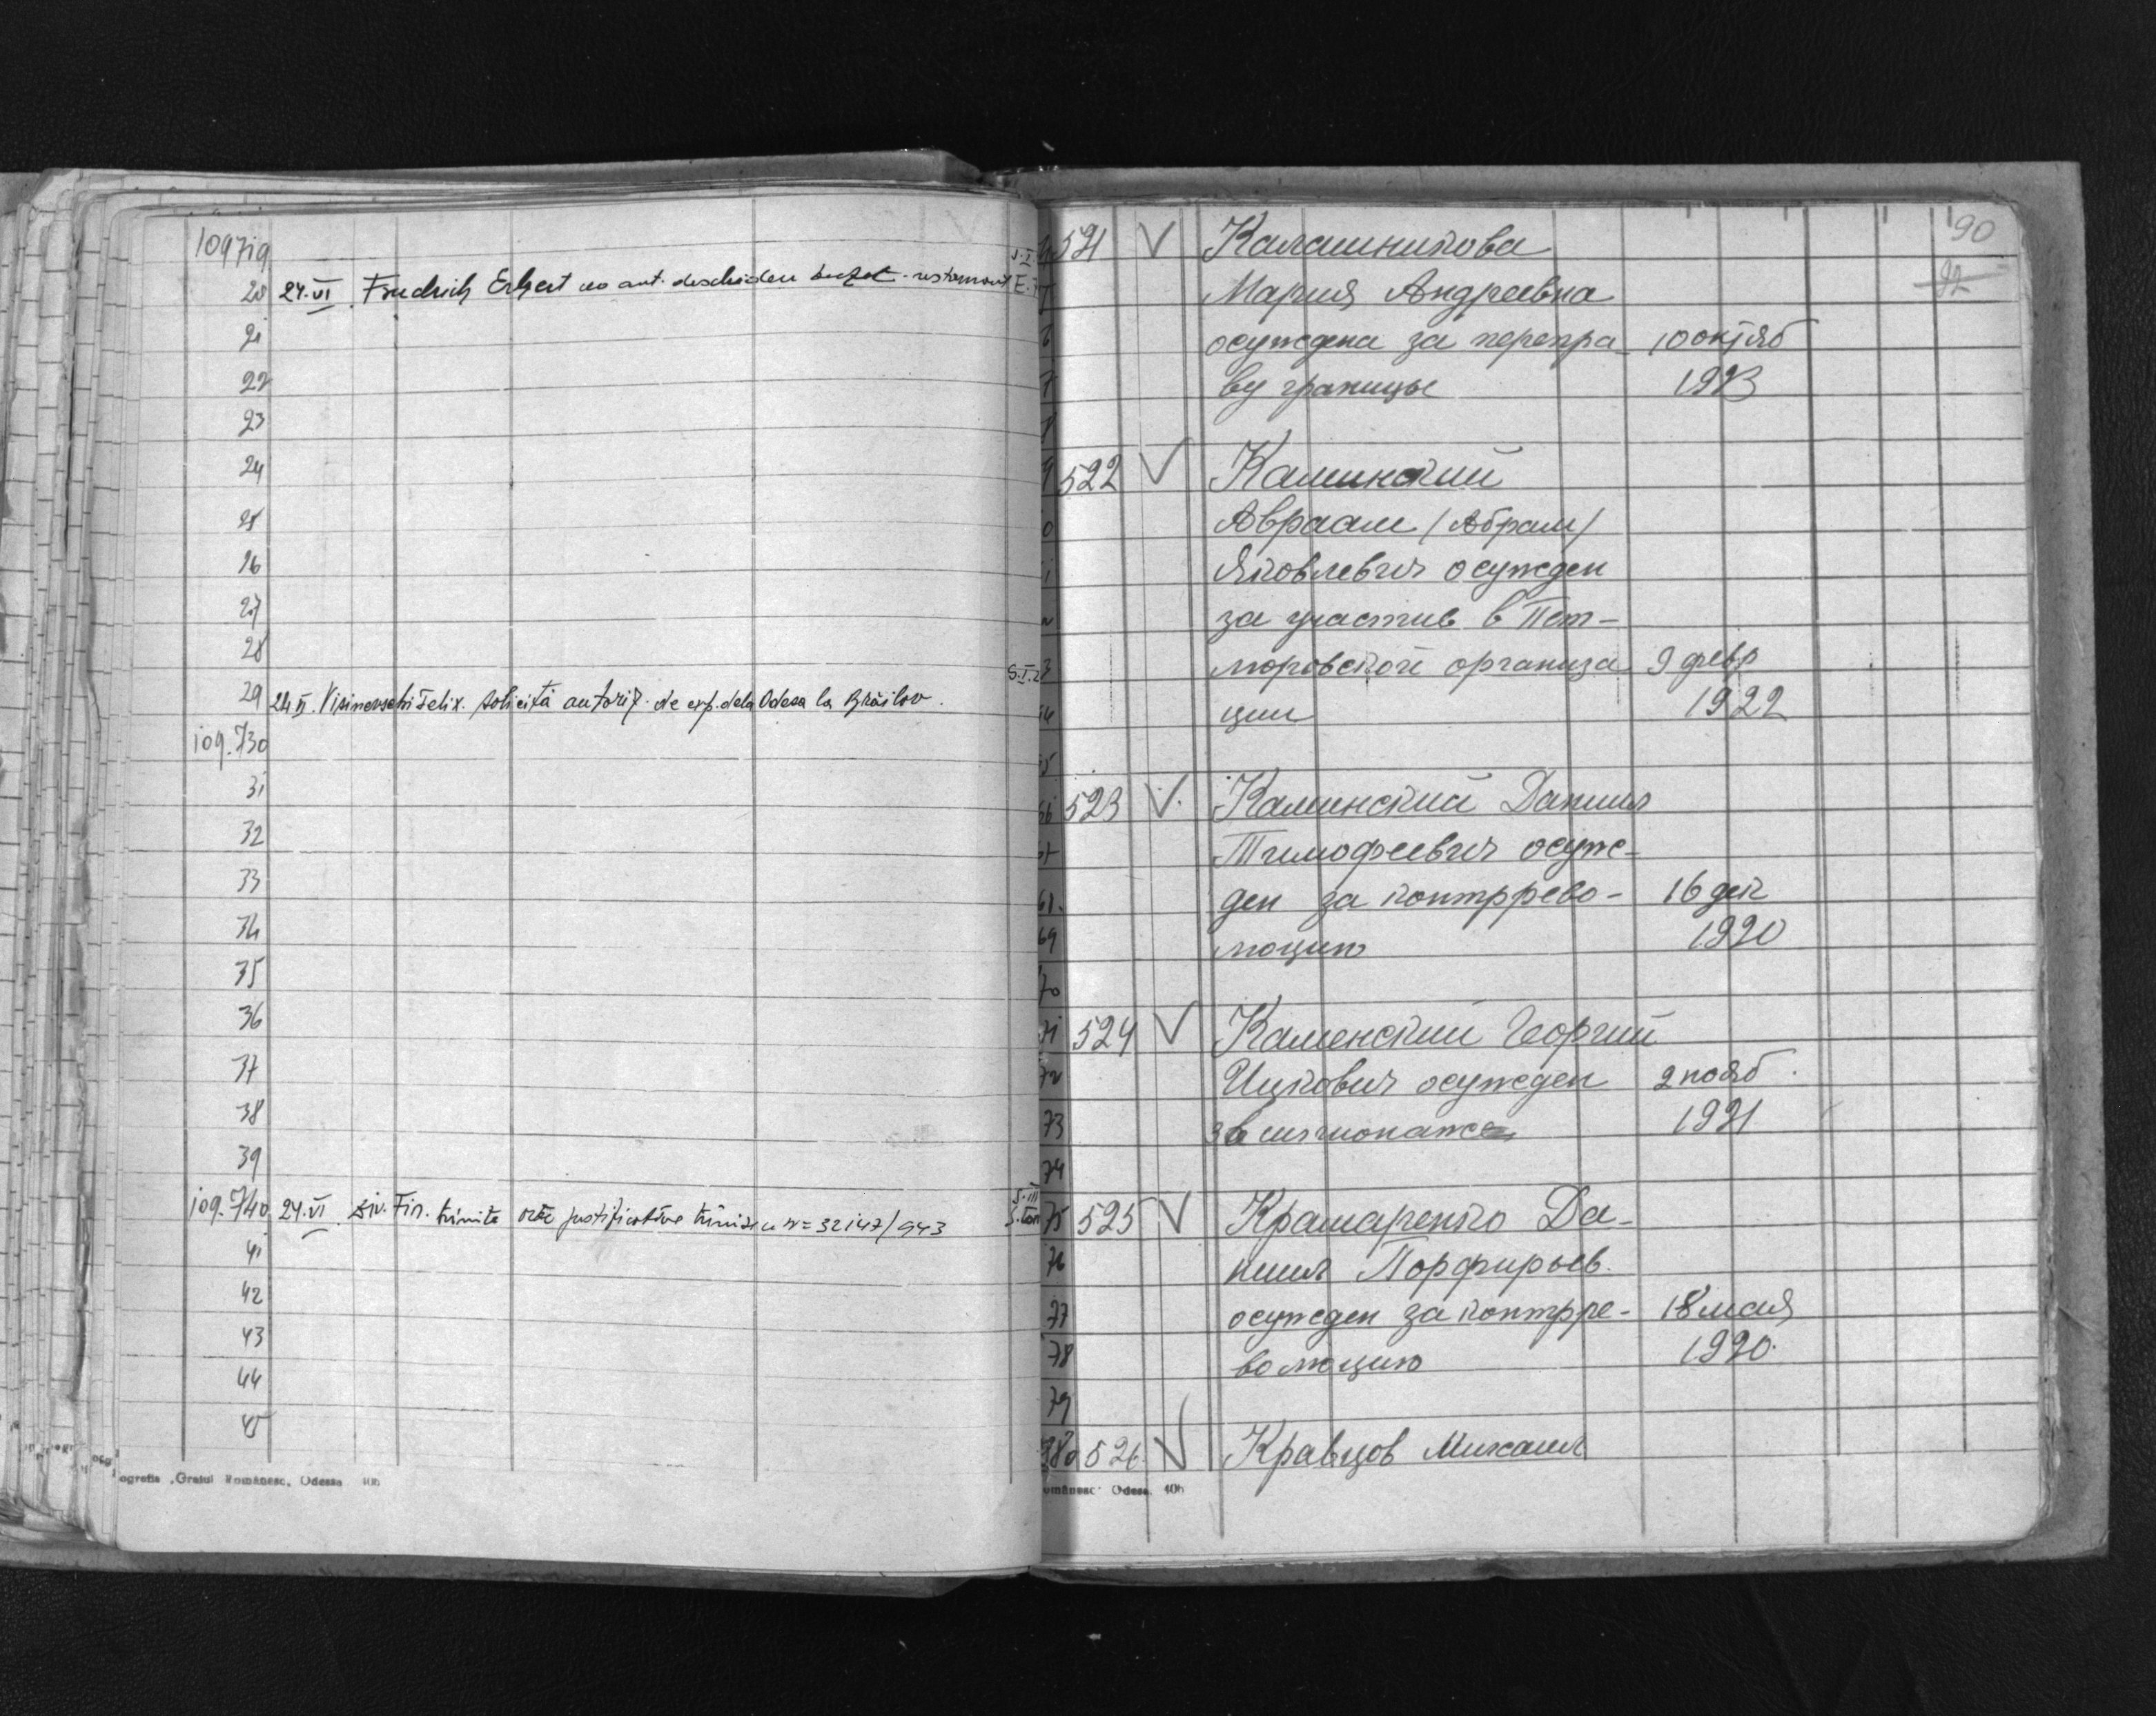 109719
20 24.VI Friedrich Erhert no aut. deschidere bufet-restaurant
21
22
23
24
25
26
27
28
29 24.VI. Visinevschi Felix. solicită autoriz. de exp. dela Odesa la Brăilov.
109.730
31
32
33
34
35
36
37
38
39
109.740 24.VI Fin. trimite acte justificative trimise cu N= 32147/943
41
42
43
44
45
ografia „Graiul Românesc, Odessa
90
92
521 V Калашникова
Мария Андреевна
осуждена за перепра- 10 октяб
ву границы 1923
522 V Каминский
Авраам /Абрам/
Яковлевич осужден
за участие в Пет-
люровской организа 9 февр
ции 1922
523 V. Каминский Даниил
Тимофеевич осуж-
ден за контррево- 16 дек
люцию 1920
524 V Каменский Георгий
Ицкович осужден 2 нояб.
в шпионаже 1921
525 V Крамаренко Да-
ниил Порфирьев.
осужден за контрре- 18 мая
волюцию 1920.
526. V Кравцов Михаил
omânesc" Odesa. 40h